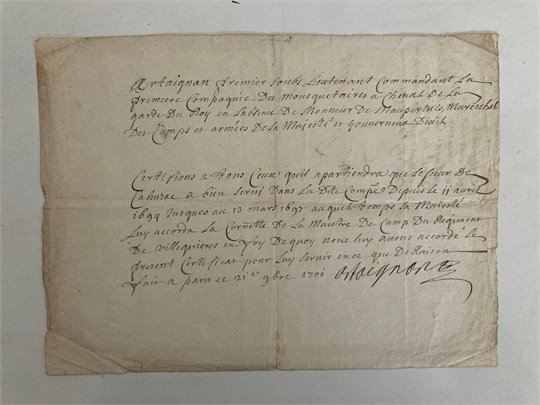 Artaignan premier soubs Lieutenant Commandant La
premiere Compagnie Des Mousquetaires a Cheval De La
garde Du Roy en Labsence De Monsieur De Maupertuis, Mareschal
Des Camps et armées De Sa Majesté et Gouverneur
Certifions a tous Ceux quil apartiendra que le sieur De
Cahuzac a bien Servy Dans La Dite Compe Depuis le 11 avril
1694 Jusques au 13 mars 1697 auquel temps sa Majesté
Luy accorda La Cornette De La Maistre De Camp Du Regiment
De Villequieres en foy De quoy nous luy avons accordé Le
present Certificat pour Luy Servir en ce que De Raison
fait a paris ce 21e 9bre 1701 Artaignan